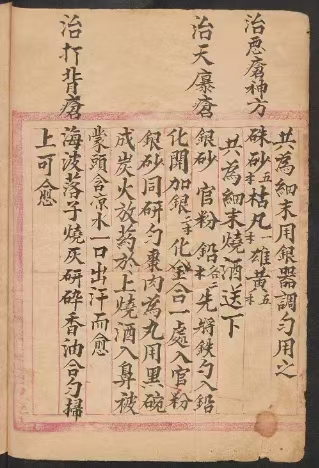 共為細末用銀器調勻用之
治惡瘡神方
硃砂五枯凡一雄黃五
共為細末燒酒送下
治天瘡
銀砂 官粉 鉛各二先將鉄勺入鉛
化開加銀二化全合一處入官粉
銀砂同研勻棗肉為丸用黑碗
成炭火放药於上燒酒入鼻被
蒙頭含凉水一口出汗而愈
治打背瘡
海波落子燒灰研碎香油合勻掃
上可愈